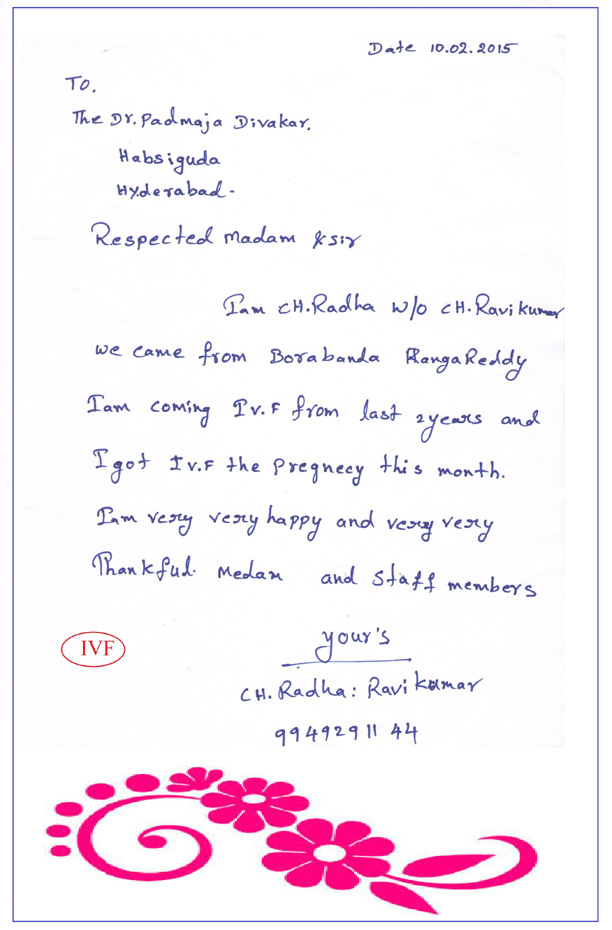 Date 10.02.2015
To.
The Dr. Padmaja Divakar.
Habsiguda
Hyderabad.
Respected Madam & sir
I am CH. Radha W/o CH. Ravi kumar
we came from Borabanda RangaReddy
I am coming I v. F from last 2 years and
I got I v. F the Pregnecy this month.
I am very very happy and very very
Thankful. Medam and Staff members
your's
IVF
CH. Radha: Ravi kumar
99492911 44